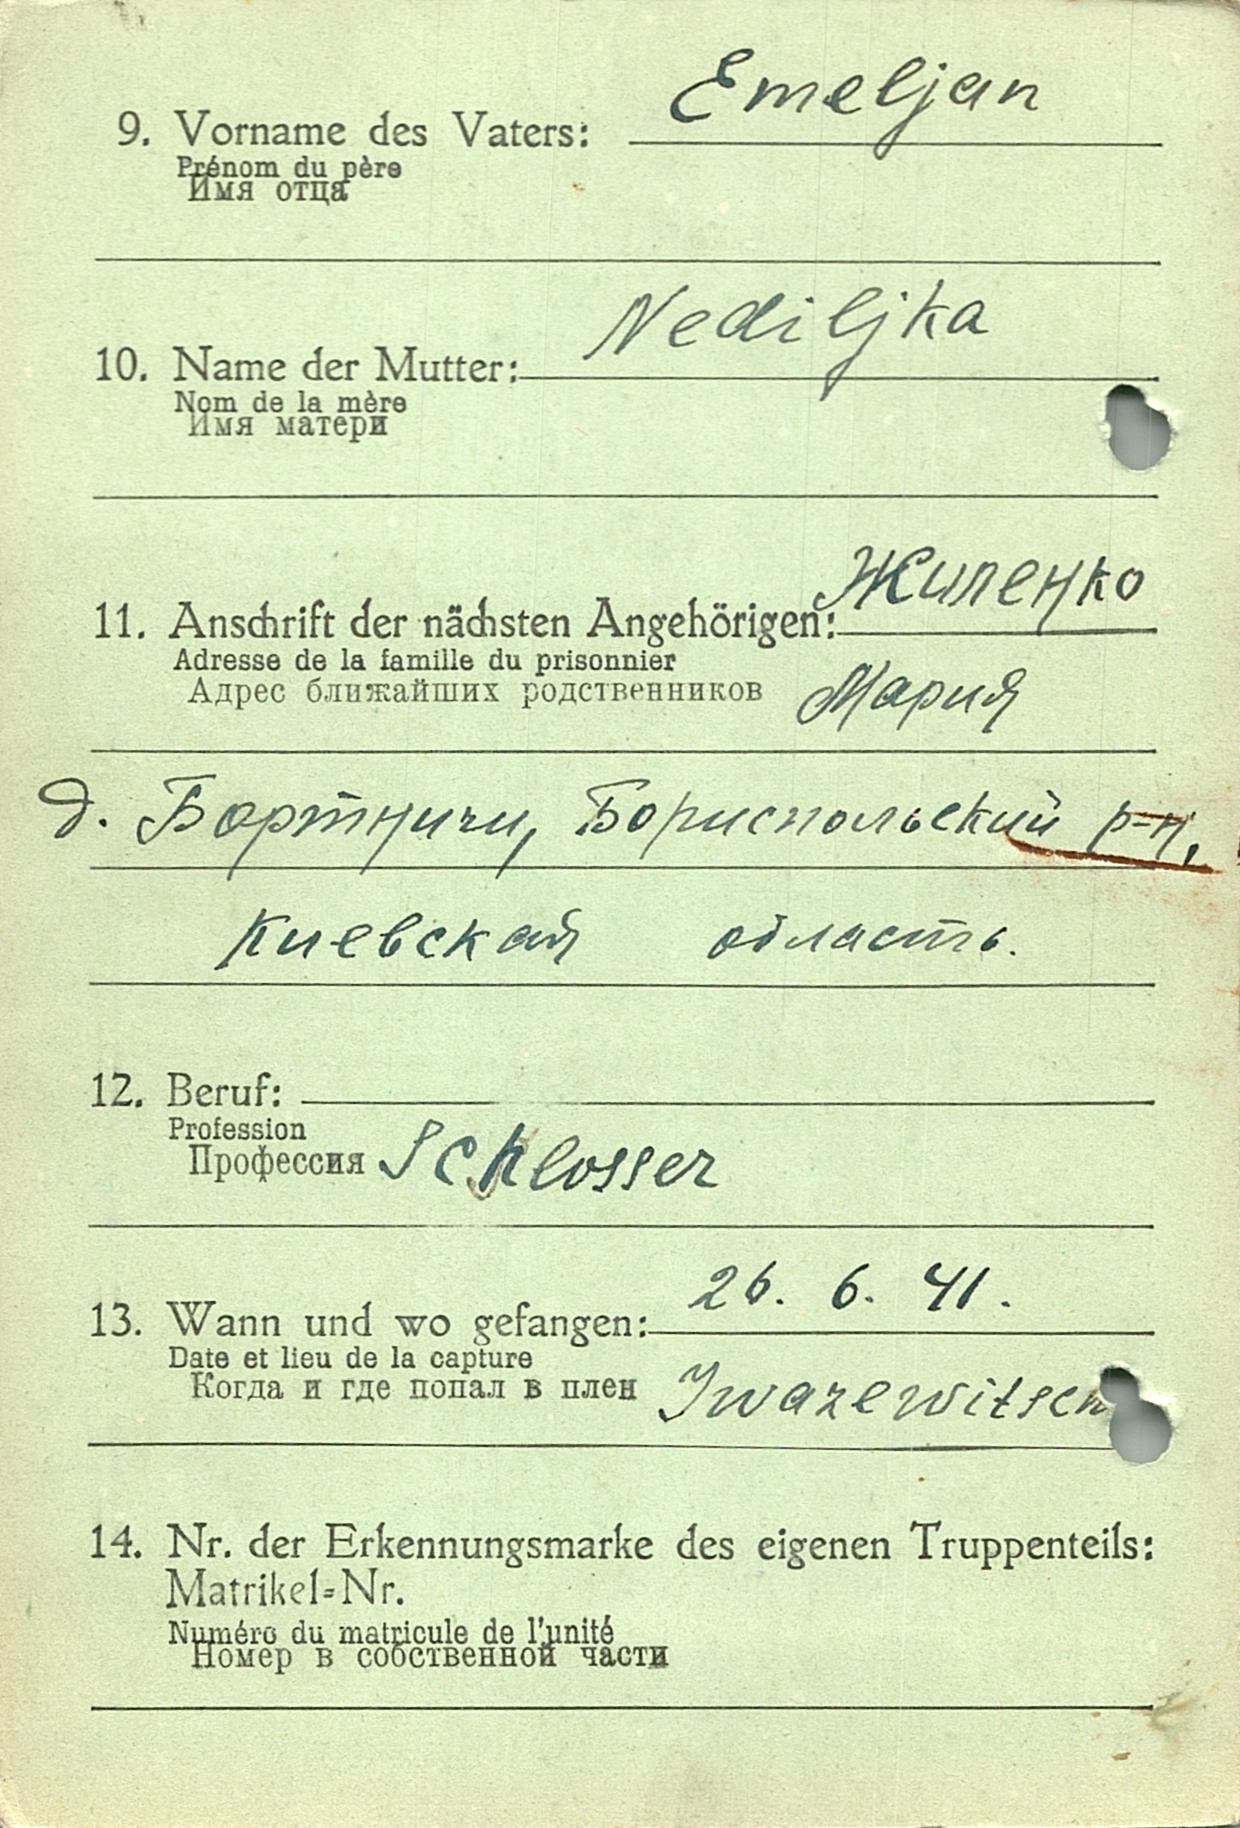 Emeljan
9. Vorname des Vaters:
Prénom du père
Имя отца
Nediljka
10. Name der Mutter:
Nom de la mère
Имя матери
Жиленко
11. Anschrift der nächsten Angehörigen:
Adresse de la famille du prisonnier
Адрес ближайших родственников Мария
д. Бортничи, Бориспольский р-н,
Киевская область.
12. Beruf:
Profession
Профессия Schlosser
26. 6. 41.
13. Wann und wo gefangen:
Date et lieu de la capture
Когда и где попал в плен Iwazewitsch
14. Nr. der Erkennungsmarke des eigenen Truppenteils:
Matrikel=Nr.
Numéro du matricule de l'unité
Номер в собственной части